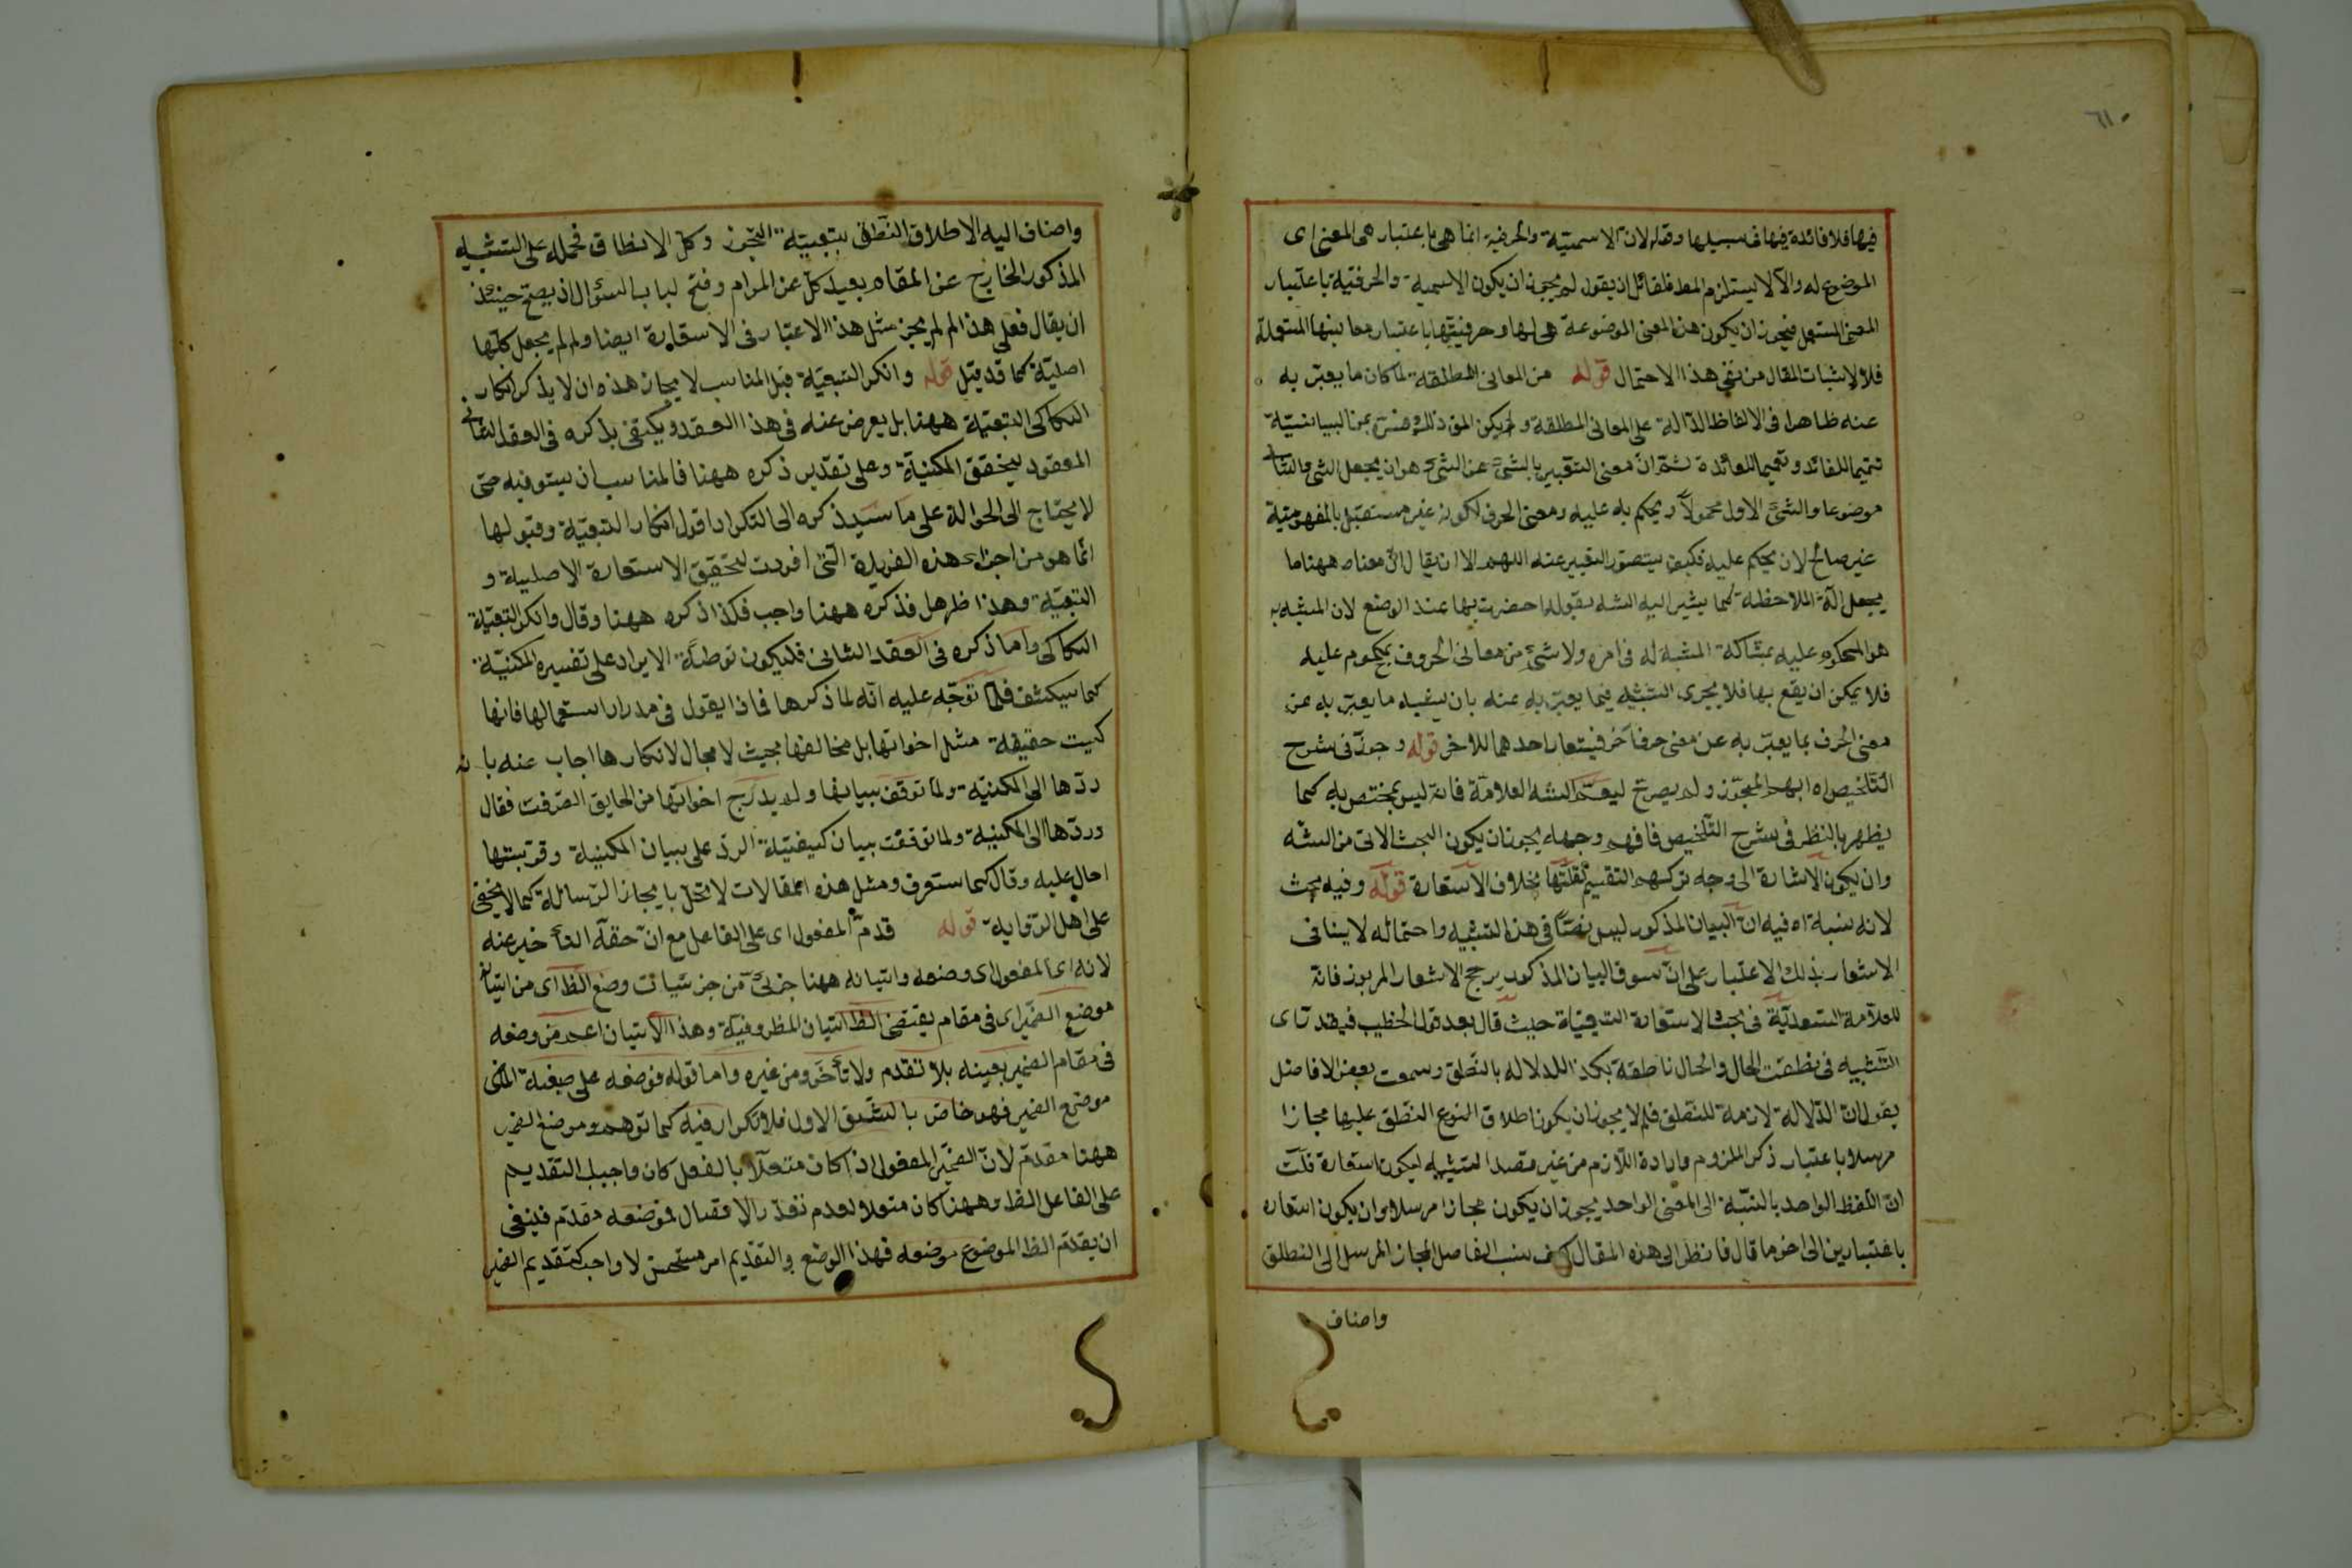 ٦١٠
فيها فلا فائدة فيها في سبيلها وقوله لان الاسمية والحرفية انما هي باعتبار هي المعنى اى
الموضوع له والا لا يستلزم المط فلقائل ان يقول لم يجوز ان يكون الاسمية والحرفية باعتبار
المعنى المستعمل فيجوز ان يكون هذا المعنى الموضوعة هى لها وحرفيتها باعتبار معانيها المستعملة
فلا لاثبات المقال من نفى هذا الاحتمال قوله من المعانى المطلقة لما كان ما يعبر به
عنه ظاهرا فى الالفاظ الدالة على المعانى المطلقة ولم يكن المق ذلك فسره بمن البيانية
تتميما للفائد وتعميما للعائدة ثم ان معنى التعبير بالشئ عن الشئ هو ان يجعل الشئ الثانى
موضوعا والشئ الاول محمولا ويحكم به عليه ومعنى الحرف لكونه غير مستقل بالمفهومية
غير صالح لان يحكم عليه فكيف يتصور التعبير عنه اللهم الا ان يقال ان معناه ههنا ما
يجعل آلة الملاحظة كما يشير اليه الشه بقوله احضرت بها عند الوضع لان المشبه به
هو المحكوم عليه بمشاكلة المشبه له فى امره ولا شئ من معانى الحروف بمحكوم عليه
فلا يمكن ان يقع بها فلا يجرى التشبيه فيما يعبر به عنه بان يشبه ما يعبر به عن
معنى الحرف بما يعبر به عن معنى حرف آخر فيستعار احدهما للاخر قوله وجوز فى شرح
التلخيص اه ابهم المجوز ولم يصرح ليعم الشه العلامة فانه ليس بمختص به كما
يظهر بالنظر فى شرح التلخيص فافهم وجهه يجوز ان يكون البحث الاتى من الشه
وان يكون الاشارة الى وجه تركهم التقسيم لقلتها بخلاف الاستعارة قوله وفيه بحث
لانه شبه اه فيه ان البيان المذكور ليس نصا فى هذا التشبيه واحتماله لا ينافى
الاشعار بذلك الاعتبار على ان سوق البيان المذكور يرجح الاشعار المربوز فانه
للعلامة السعدية فى بحث الاستعارة التبعية حيث قال بعد قول الخطيب فيقدر اى
التشبيه فى نطقت الحال والحال ناطقة بكذا للدلالة بالنطق وسمعت بعض الافاضل
يقول ان الدلالة لازمة للنطق فلم لا يجوز ان يكون اطلاق النوع النطق عليها مجازا
مرسلا باعتبار ذكر الملزوم وارادة اللازم من غير قصد التشبيه ليكون استعارة قلت
ان اللفظ الواحد بالنسبة الى المعنى الواحد يجوز ان يكون مجازا مرسلا وان يكون استعارة
باعتبارين الى اخر ما قال فانظر الى هذه المقال كيف نسب الفاضل المجاز المرسل الى النطق
واضاف
واضاف اليه الاطلاق النطق بتبعية التجوز وكل الانطاق فحمله على التشبيه
المذكور الخارج عن المقام بعيد كل عن المرام وفتح لباب السؤال اذ يصح حينئذ
ان يقال فعلى هذا لم لم يجز مثل هذا الاعتبار فى الاستعارة ايضا ولم لم يجعل كلها
اصلية كما قد قيل قوله وانكر التبعية قيل المناسب لايجاز هذه ان لا يذكر انكار
السكاكى التبعية ههنا بل يعرض عنه فى هذا العقد ويكتفى بذكره فى العقد الثانى
المعقود لتحقق المكنية وعلى تقدير ذكره ههنا فالمناسب ان يستوفيه حتى
لا يحتاج الى الحوالة على ما سيذكره الى التكرار اقول انكار التبعية وقبولها
انما هو من اجزاء هذه الفريدة التى افردت لتحقيق الاستعارة الاصلية و
التبعية وهذا ظ وهل فذكره ههنا واجب فكذا ذكره ههنا وقال وانكر التبعية
السكاكى واما ذكره فى العقد الثانى فليكون توطئة الايراد على تفسيره المكنية
كما سيكشف فلما توجه عليه انه لما ذكرها فاذا يقول فى مدار استعمالها فانها
كيت حقيقة مثل اخواتها بل مخالفها بحيث لا مجال لانكارها اجاب عنه بانه
ردها الى المكنية ولما توقف ببيانها ولم يدرج اخواتها من الحايق الصرفت فقال
وردها الى المكنية ولما توقفت بيان كيفية الرد على بيان المكنية وقرينتها
احال عليه وقال كما ستعرف ومثل هذه المقالات لا تخل بايجاز الرسالة كما لا يخفى
على اهل الرواية قوله قدم المفعول اى على الفاعل مع ان حقه التأخير عنه
لانه اى المفعول اى وضعه واتيانه ههنا جزئى من جزئيات وضع الظ اى من اتيان
موضع الضمير اى فى مقام يقتضى الظ اتيان المظر وفية وهذا الاتيان اعم من وضعه
فى مقام الضمير بعينه بلا تقدم ولا تأخر ومن غيره واما قوله فوضعه على صيغة الماضى
موضع الضمير فهو خاص بالشق الاول فلا تكرار فيه كما توهم وموضع الضمير
ههنا مقدم لان الضمير المفعول اذا كان متصلا بالفعل كان واجب التقديم
على الفاعل الظ وههنا كان متصلا لعدم تعذر الاتصال فموضعه مقدم فينبغى
ان يقدم الظ الموضوع موضعه فهذا الوضع والتقديم امر مستحسن لا واجب كتقديم الضمير